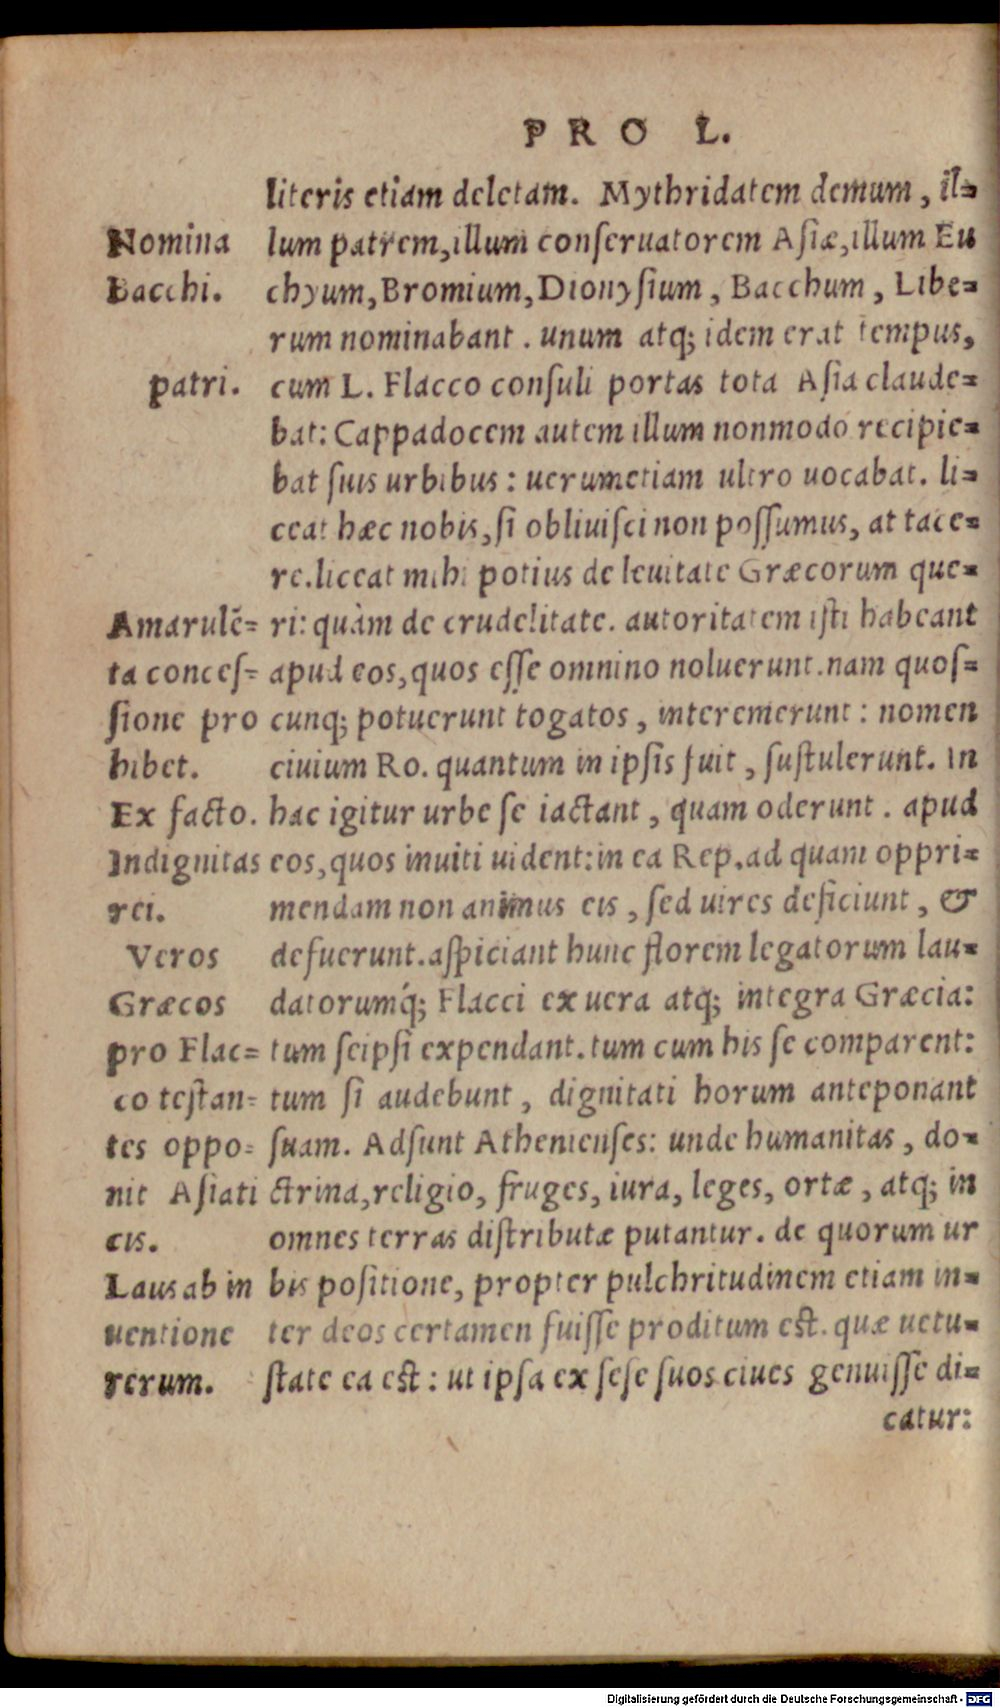 PRO L.
literis etiam deletam. Mythridatem demum, il=
Nomina
lum patrem, illum conseruatorem Asiæ, illum Eu
Bacchi.
chyum, Bromium, Dionysium, Bacchum, Libe=
rum nominabant. unum atq; idem erat tempus,
patri.
cum L. Flacco consuli portas tota Asia claude=
bat: Cappadocem autem illum nonmodo recipie=
bat suis urbibus: uerumetiam ultro uocabat. li=
ceat hæc nobis, si obliuisci non possumus, at tace=
re. liceat mihi potius de leuitate Græcorum que=
Amarulẽ=
ri: quàm de crudelitate. autoritatem isti habeant
ta conces=
apud eos, quos esse omnino noluerunt. nam quos=
sione pro
cunq; potuerunt togatos, interemerunt: nomen
hibet.
ciuium Ro. quantum in ipsis fuit, sustulerunt. In
Ex facto.
hac igitur urbe se iactant, quam oderunt. apud
Indignitas
eos, quos inuiti uident: in ea Rep. ad quam oppri=
rei.
mendam non animus eis, sed uires deficiunt, &
Veros
defuerunt. aspiciant hunc florem legatorum lau=
Græcos
datorumq́; Flacci ex uera atq; integra Græcia:
pro Flac=
tum seipsi expendant. tum cum his se comparent:
co testan=
tum si audebunt, dignitati horum anteponant
tes oppo=
suam. Adsunt Athenienses: unde humanitas, do=
nit Asiati
ctrina, religio, fruges, iura, leges, ortæ, atq; in
cis.
omnes terras distributæ putantur. de quorum ur
Laus ab in
bis positione, propter pulchritudinem etiam in=
uentione
ter deos certamen fuisse proditum est. quæ uetu=
rerum.
state ea est: ut ipsa ex sese suos ciues genuisse di=
catur:
Digitalisierung gefördert durch die Deutsche Forschungsgemeinschaft - DFG